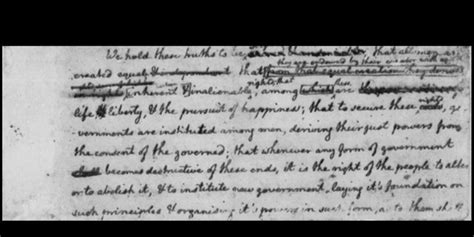 We hold these truths to be that all men are
they are endowed by their creator with
created equal & independent that from that equal creation they derive
rights that these
inherent & inalienable, among which are
life & liberty, & the pursuit of happiness; that to secure these rights, go-
vernments are instituted among men, deriving their just powers from
the consent of the governed; that whenever any form of government
shall becomes destructive of these ends, it is the right of the people to alter
or to abolish it, & to institute new government, laying it's foundation on
such principles & organising it's powers in such form, as to them